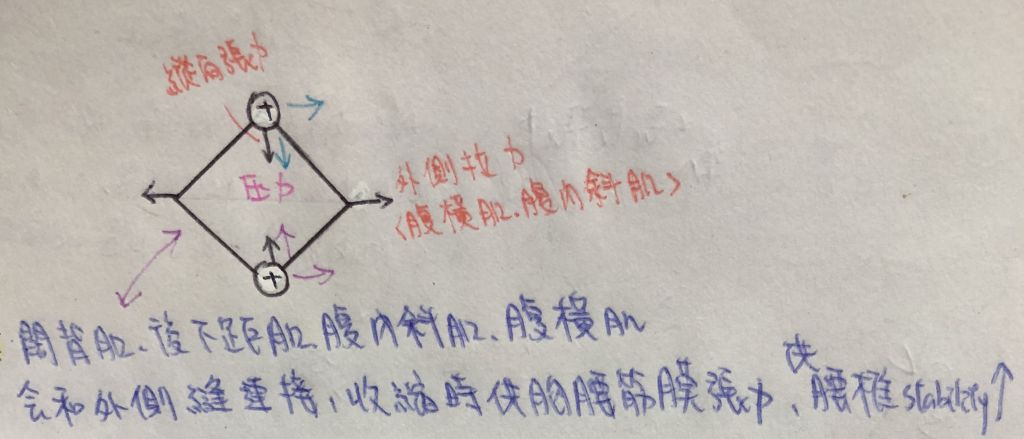 縱向張力
压力
外側拉力
<腹橫肌.腹內斜肌>
闊背肌、後下鋸肌 腹內斜肌、腹橫肌
会和外側縫連接,收縮時使胸腰筋膜張力、使腰椎stability↑